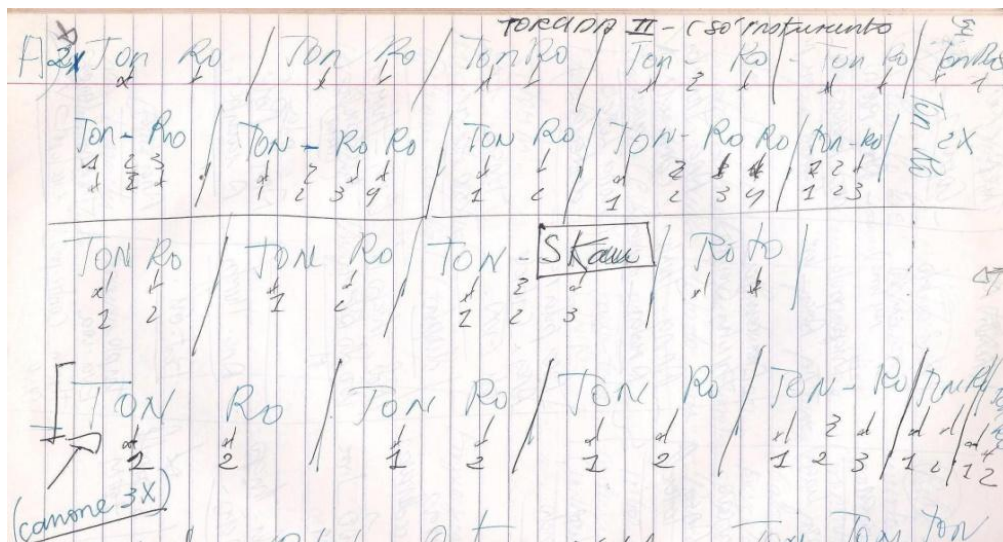 TOKADA II - (só instrumento
A) 2x Ton Ro / Ton Ro / Ton Ro / Ton - Ro - / Ton Ro / Ton Ro
2
Ton - Ro / Ton - Ro Ro / Ton Ro / Ton - Ro Ro / Ton - Ro / Ton Ro 2X
1 2 3 2
1 2 3 4 1 2 1 2 3 4 1 2 3
Ton Ro / Ton Ro / Ton - SKam / Ro to /
2
1 2 1 2 1 2 3
Ton Ro / Ton Ro / Ton Ro / Ton - Ro / Ton Ro /
2
1 2 1 2 1 2 1 2 3 1 2 1 2
(canone 3X)
Ton Ton Ton